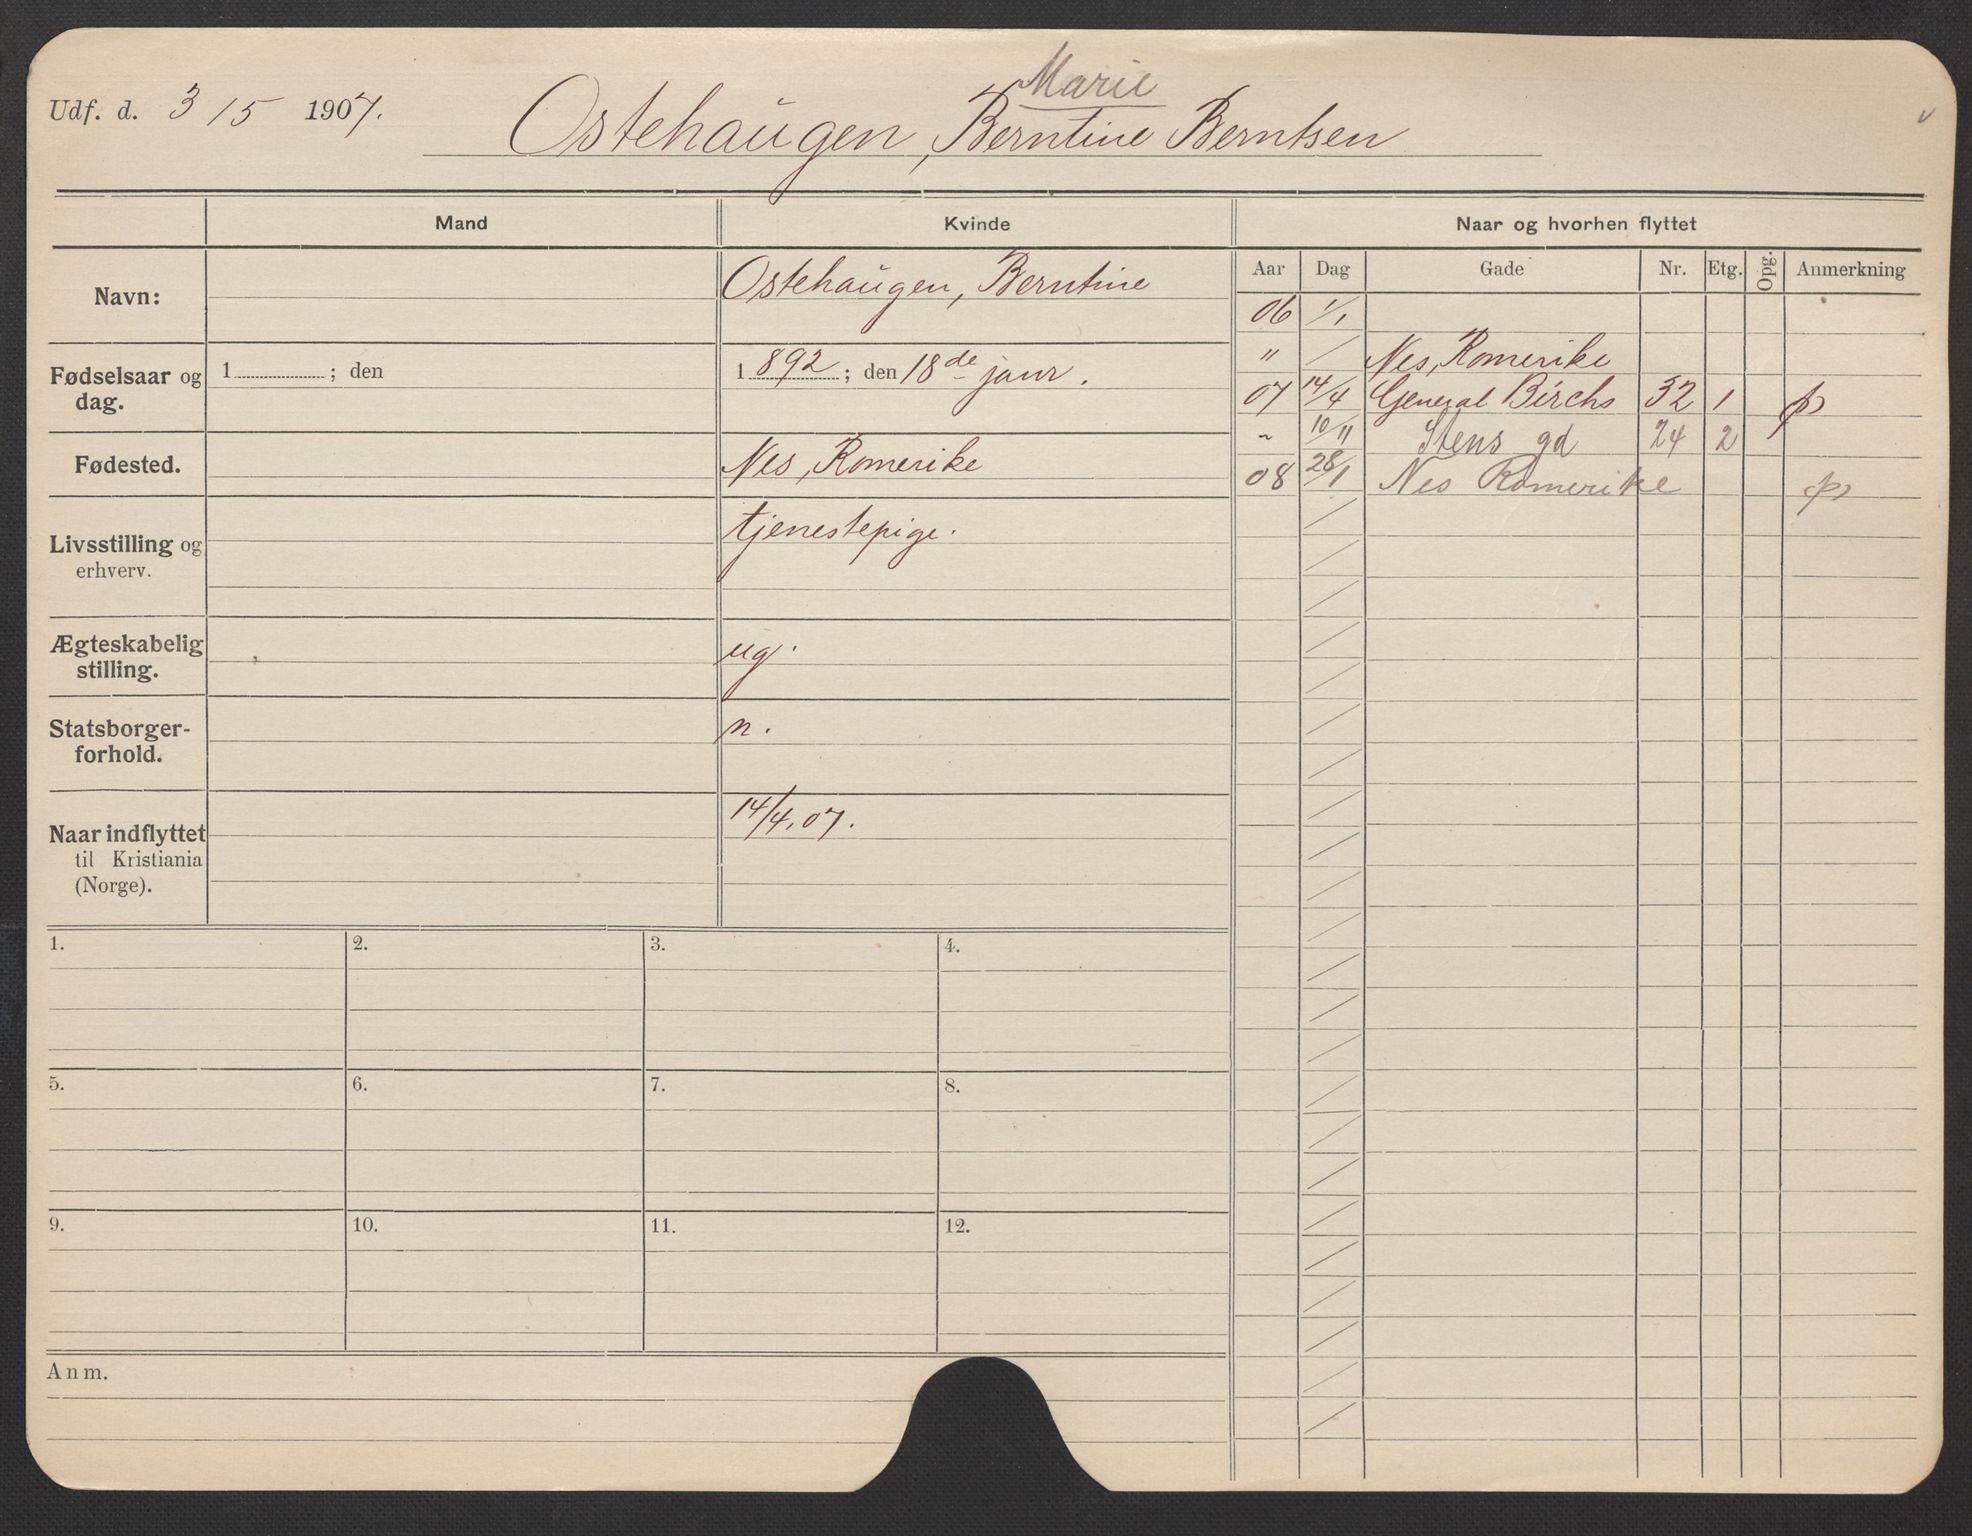 Marie
Udf. d. 3/5 1907. Ostehaugen, Berntine Berntsen
Mand Kvinde Naar og hvorhen flyttet
Aar Dag Gade Nr. Etg. Opg. Anmerkning
Navn: Ostehaugen, Berntine
06 1/1
" / Nes, Romerike
07 14/4 General Birchs 32 1
" 10/11 Stens gd 24 2
08 28/1 Nes Romerike
Fødselsaar og 1 ; den 1892 ; den 18de janr.
dag.
Fødested. Nes, Romerike
Livsstilling og tjenestepige.
erhverv.
Ægteskabelig ug.
stilling.
Statsborger- n.
forhold.
Naar indflyttet 14/4.07.
til Kristiania
(Norge).
1. 2. 3. 4.
5. 6. 7. 8.
9. 10. 11. 12.
Anm.